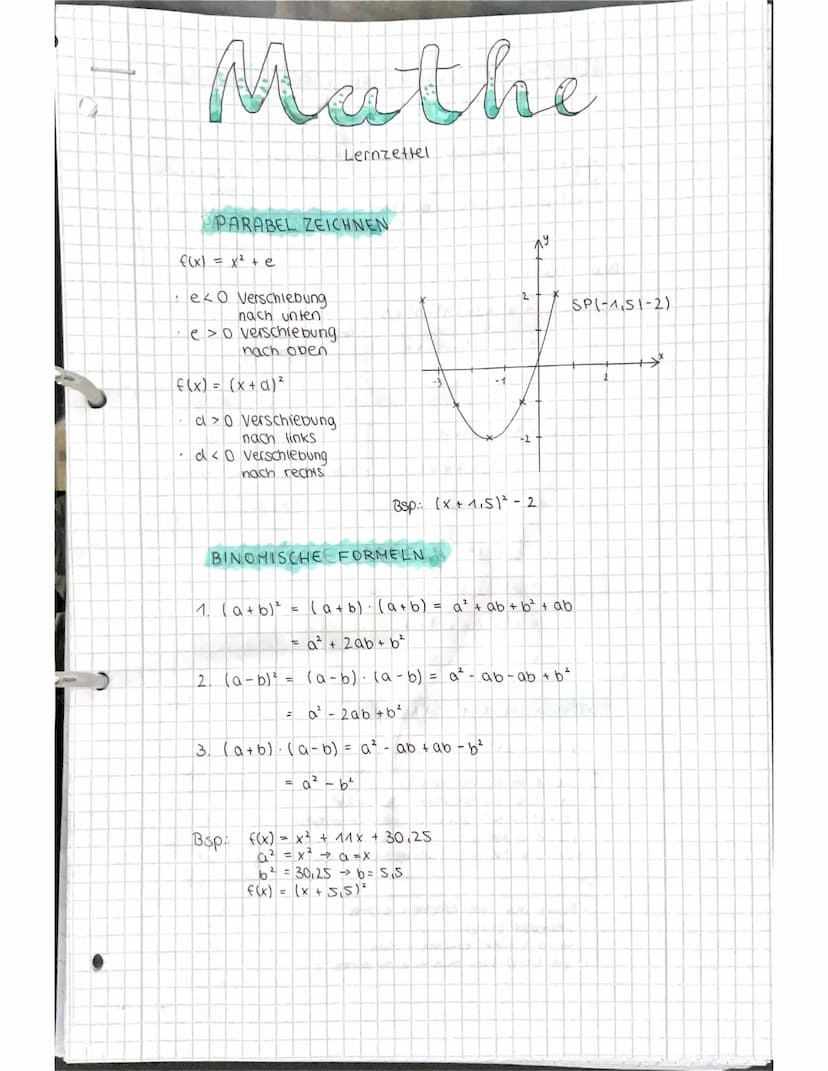 Mathe
Lernzettel
PARABEL ZEICHNEN
f(x) = x² + e
· e < 0 Verschiebung
nach unten
· e > 0 Verschiebung
nach oben
f(x) = (x + d)²
· d > 0 Verschiebung
nach links
· d < 0 Verschiebung
nach rechts
y
2
SP(-1,5|-2)
x
-3 -1 2
-2
Bsp.: (x + 1,5)² - 2
BINOMISCHE FORMELN
1. (a + b)² = (a + b) · (a + b) = a² + ab + b² + ab
= a² + 2ab + b²
2. (a - b)² = (a - b) · (a - b) = a² - ab - ab + b²
= a² - 2ab + b²
3. (a + b) · (a - b) = a² - ab + ab - b²
= a² - b²
Bsp: f(x) = x² + 11x + 30,25
a² = x² → a = x
b² = 30,25 → b = 5,5
f(x) = (x + 5,5)²